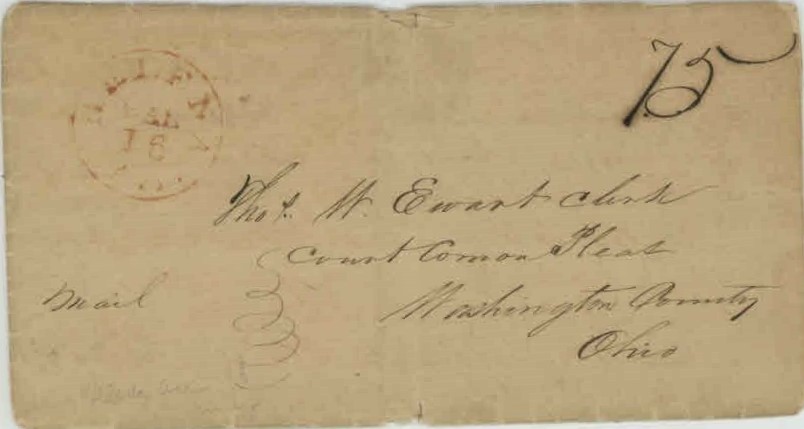 75
18
Thos. W. Ewart clerk
Court Comon Pleas
Washington County
Ohio
Mail